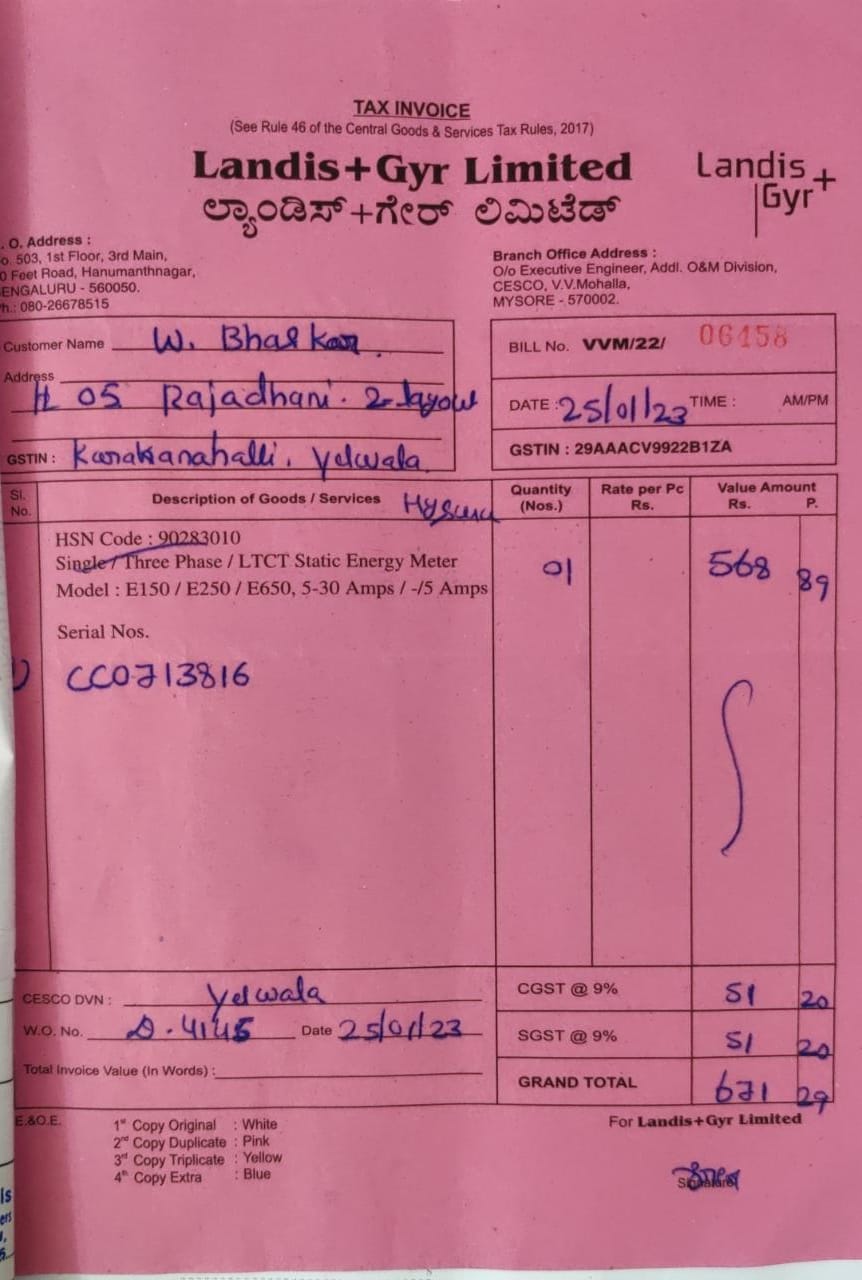 TAX INVOICE
(See Rule 46 of the Central Goods & Services Tax Rules, 2017)
Landis+Gyr Limited
Landis+
Gyr
ಲ್ಯಾಂಡಿಸ್+ಗೇರ್ ಲಿಮಿಟೆಡ್
. O. Address :
o. 503, 1st Floor, 3rd Main,
0 Feet Road, Hanumanthnagar,
ENGALURU - 560050.
h.: 080-26678515
Branch Office Address :
O/o Executive Engineer, Addl. O&M Division,
CESCO, V.V.Mohalla,
MYSORE - 570002.
Customer Name W. Bhaskar
Address
H 05 Rajadhani. 2 Layout
GSTIN : Kanakanahalli, Yelwala
BILL No. VVM/22/ 06458
DATE : 25/01/23 TIME : AM/PM
GSTIN : 29AAACV9922B1ZA
Sl. No. Description of Goods / Services Mysuru Quantity (Nos.) Rate per Pc Rs. Value Amount Rs. P.
HSN Code : 90283010
Single / Three Phase / LTCT Static Energy Meter 01 568 89
Model : E150 / E250 / E650, 5-30 Amps / -/5 Amps
Serial Nos.
1) CC0713816
CESCO DVN : Yelwala
W.O. No. D.4145 Date 25/01/23
Total Invoice Value (In Words) :
CGST @ 9% 51 20
SGST @ 9% 51 20
GRAND TOTAL 671 29
E.&O.E.
1st Copy Original : White
2nd Copy Duplicate : Pink
3rd Copy Triplicate : Yellow
4th Copy Extra : Blue
For Landis+Gyr Limited
Signature